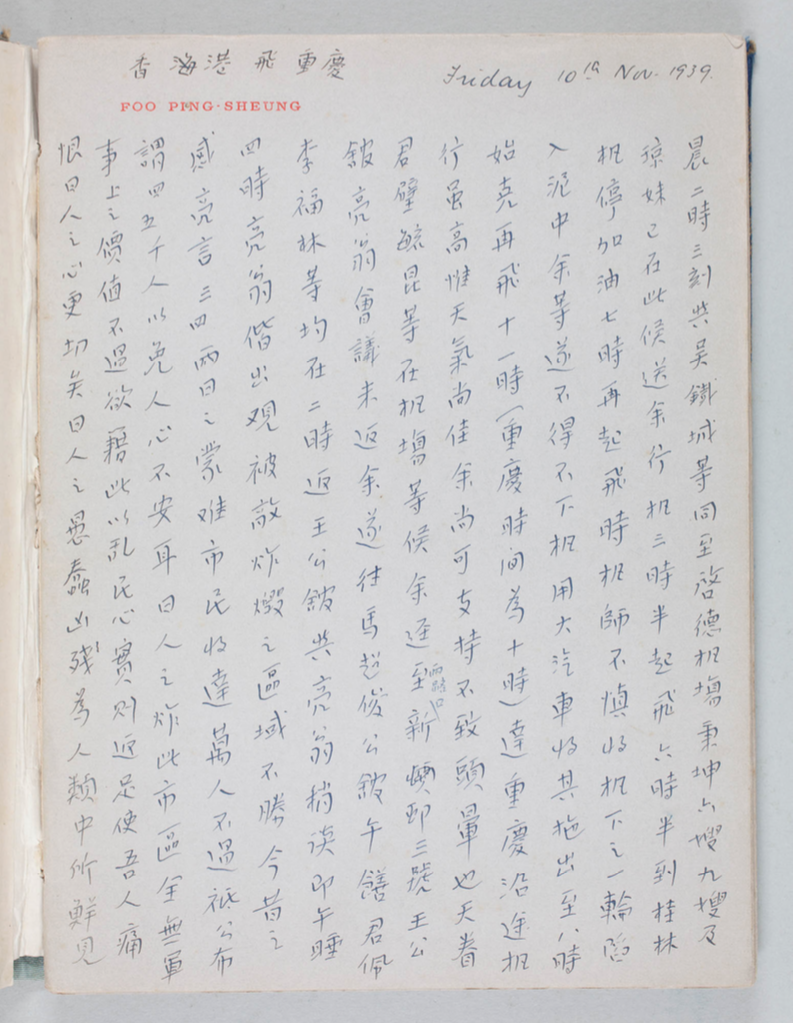 香海港飛重慶
Friday 10th Nov. 1939.
FOO PING-SHEUNG
晨二時三刻共吳鐵城等同至啓德机場秉坤六嫂九嫂及
琼妹已在此候送余行机三時半起飛六時半到桂林
机停加油七時再起飛時机師不慎將机下之一輪陷
入泥中余等遂不得不下机用大汽車將其拖出至八時
始克再飛十一時(重慶時间為十時)達重慶沿途机
行虽高惟天氣尚佳余尚可支持不致頭暈也天眷
君璧毓昆等在机場等候余逕至新村三號王公
兩路口
舘亮翁會議未返余遂往馬超俊公舘午饍君佩
李福林等均在二時返王公舘共亮翁稍談即午睡
四時亮翁偕出观被敵炸燬之區域不勝今昔之
感亮言三四兩日之蒙难市民將達萬人不過祇公布
謂四五千人以免人心不安耳日人之炸此市區全無軍
事上之價值不過欲藉此以乱民心實則返足使吾人痛
恨日人之心更切矣日人之愚蠢凶殘為人類中所鮮見